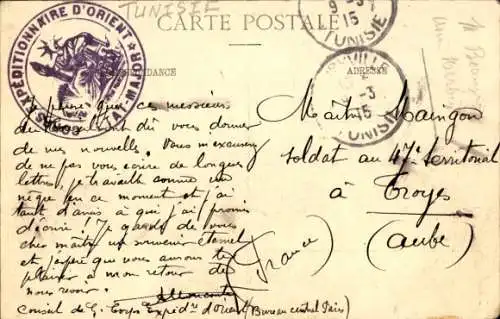 TUNISIE
CARTE POSTALE
CORRESPONDANCE
ADRESSE
EXPÉDITIONNAIRE D'ORIENT
9 -3
15
TUNISIE
-3
15
TUNISIE
Je pense que ces messieurs
du vous donner
de mes nouvelles. Vous m'excuserez
de ne pas vous écrire de longues
lettres, je travaille comme un
nègre en ce moment et j'ai
tant d'amis à qui j'ai promis
d'écrire! Je garde de vous
cher maître un souvenir éternel
et j'espère que vous aurons le
plaisir à mon retour de
nous revoir.
Conseil de G. Corps Expédre d'orient (Bureau central Paris)
Maître Maingon
soldat au 47e territorial
à Troyes
(Aube)
(France)